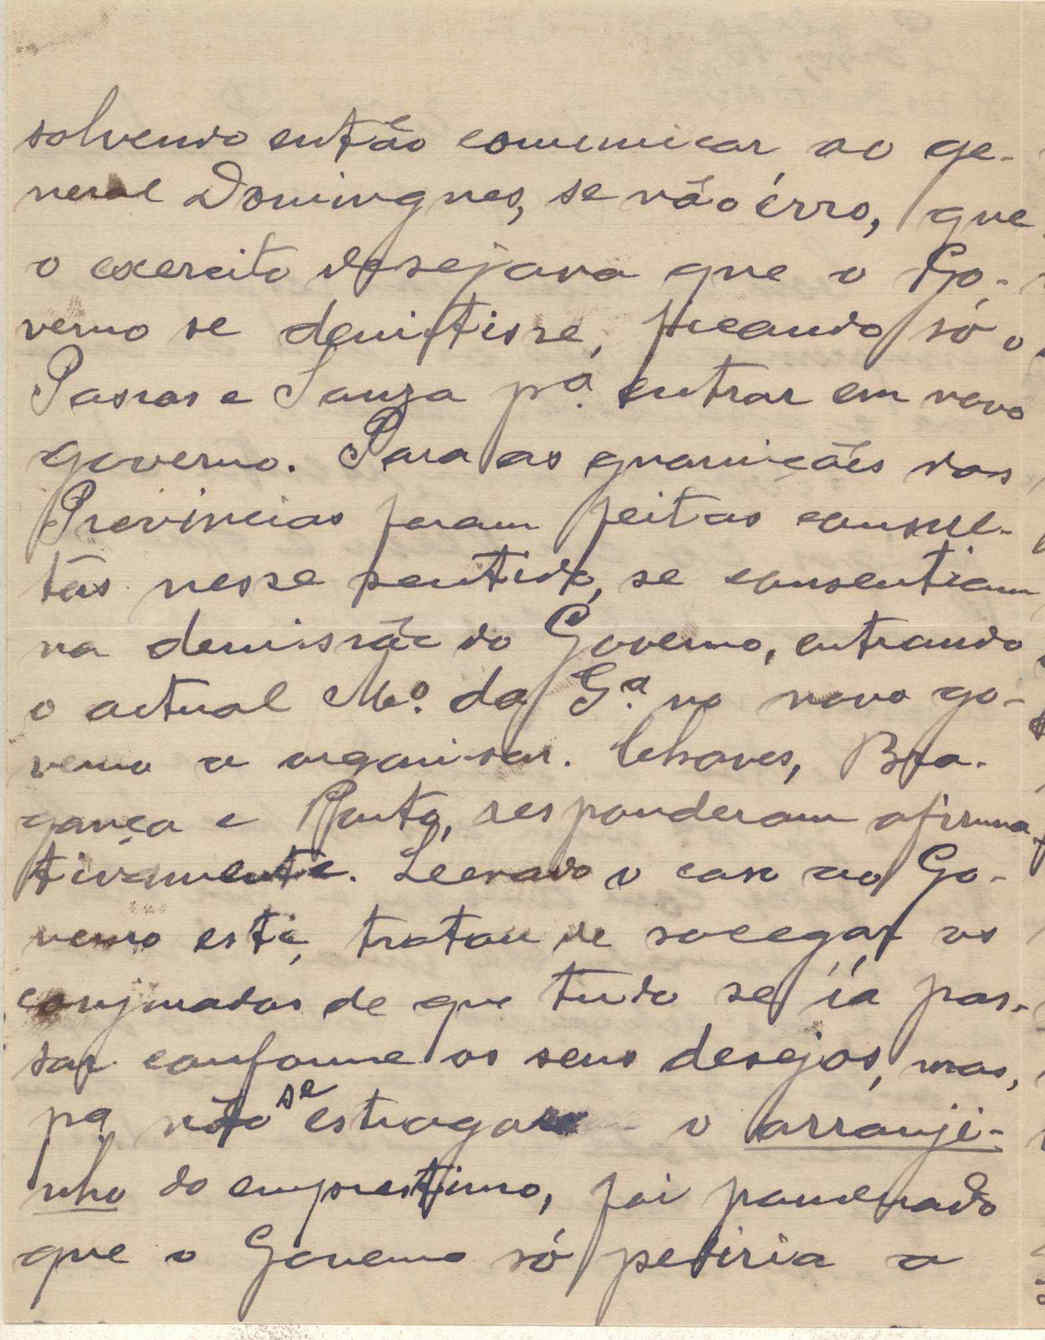 solvendo então comunicar ao ge-
neral Domingues, se não érro, que
o exercito desejava que o Go-
verno se demitisse, ficando só o
Passos e Souza pª. entrar em novo
governo. Para as guarnições das
Provincias foram feitas consul-
tas nesse sentido, se consentiam
na demissão do Governo, entrando
o actual Mº. da Gª. no novo go-
verno a organisar. Chaves, Bra-
gança e Porto, responderam afirma-
tivamente. Levado o caso ao Go-
verno este, tratou de socegar os
conjurados de que tudo se ía pas-
sar conforme os seus desejos, mas,
pª não se estragar o arranji-
nho do emprestimo, foi ponderado
que o Governo só pediria a